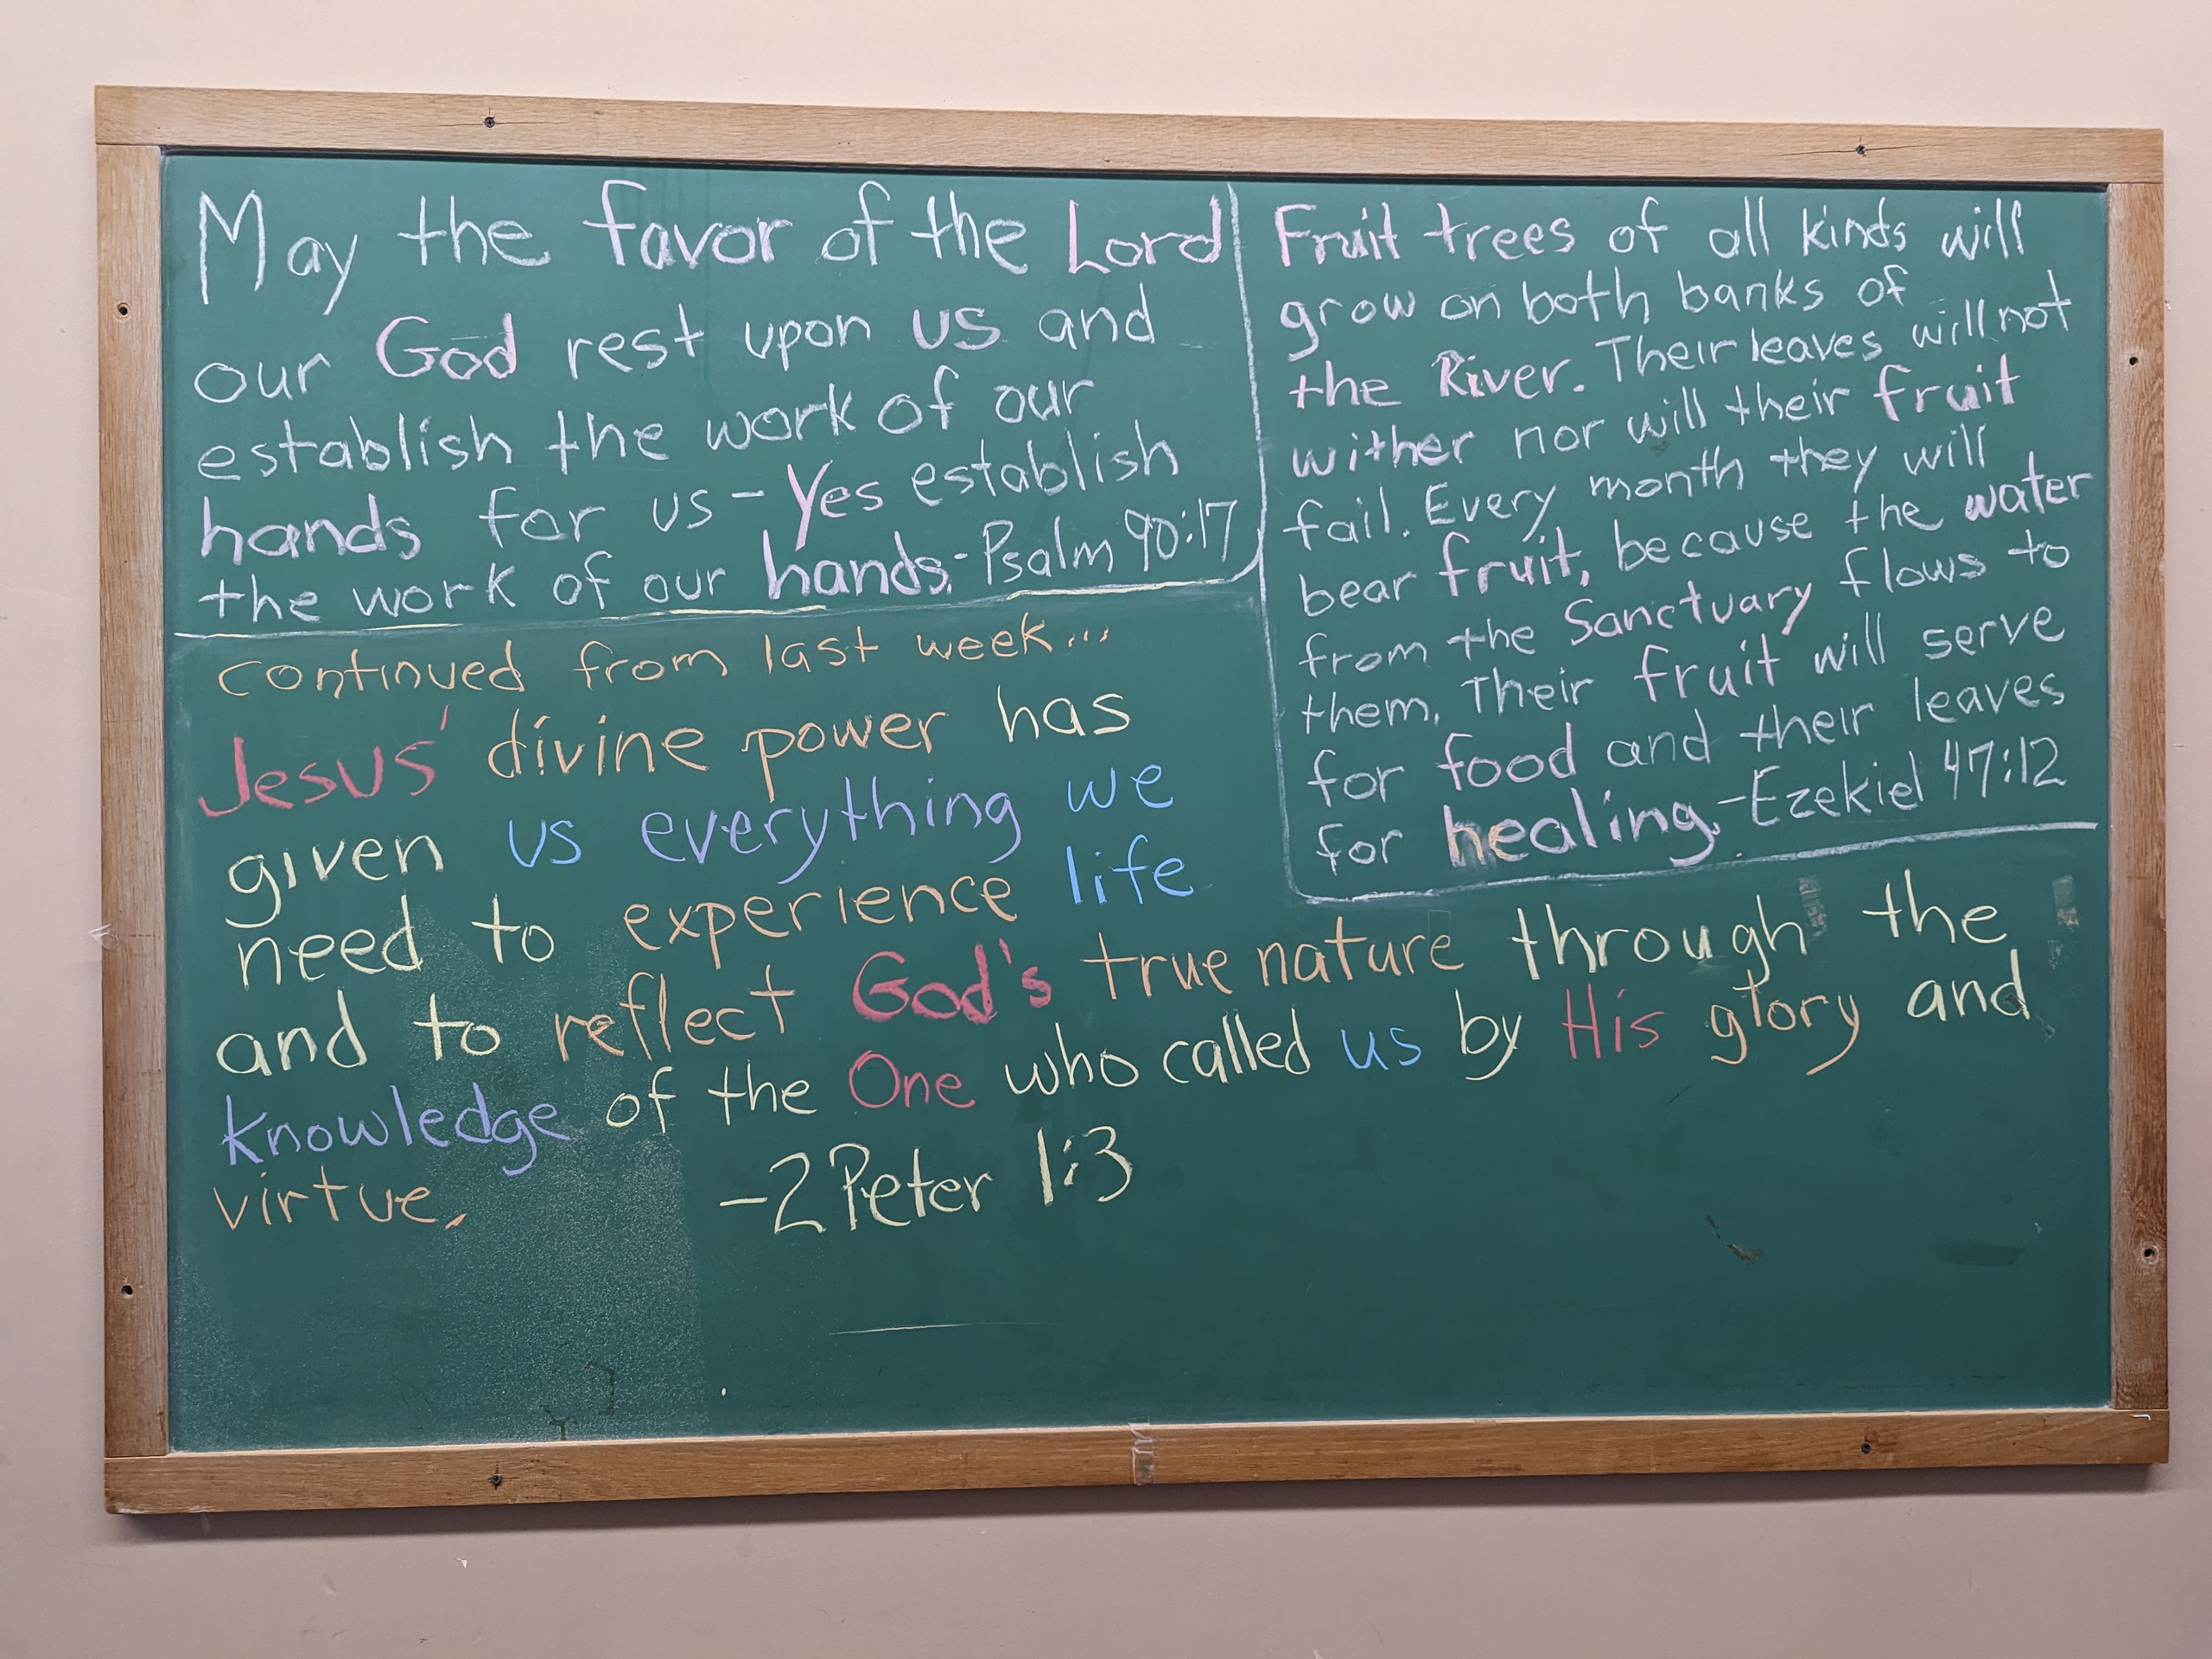 May the favor of the Lord
our God rest upon us and
establish the work of our
hands for us - Yes establish
the work of our hands. - Psalm 90:17
Fruit trees of all kinds will
grow on both banks of
the River. Their leaves will not
wither nor will their fruit
fail. Every month they will
bear fruit, because the water
from the Sanctuary flows to
them. Their fruit will serve
for food and their leaves
for healing. - Ezekiel 47:12
continued from last week...
Jesus' divine power has
given us everything we
need to experience life
and to reflect God's true nature through the
knowledge of the One who called us by His glory and
virtue. - 2 Peter 1:3